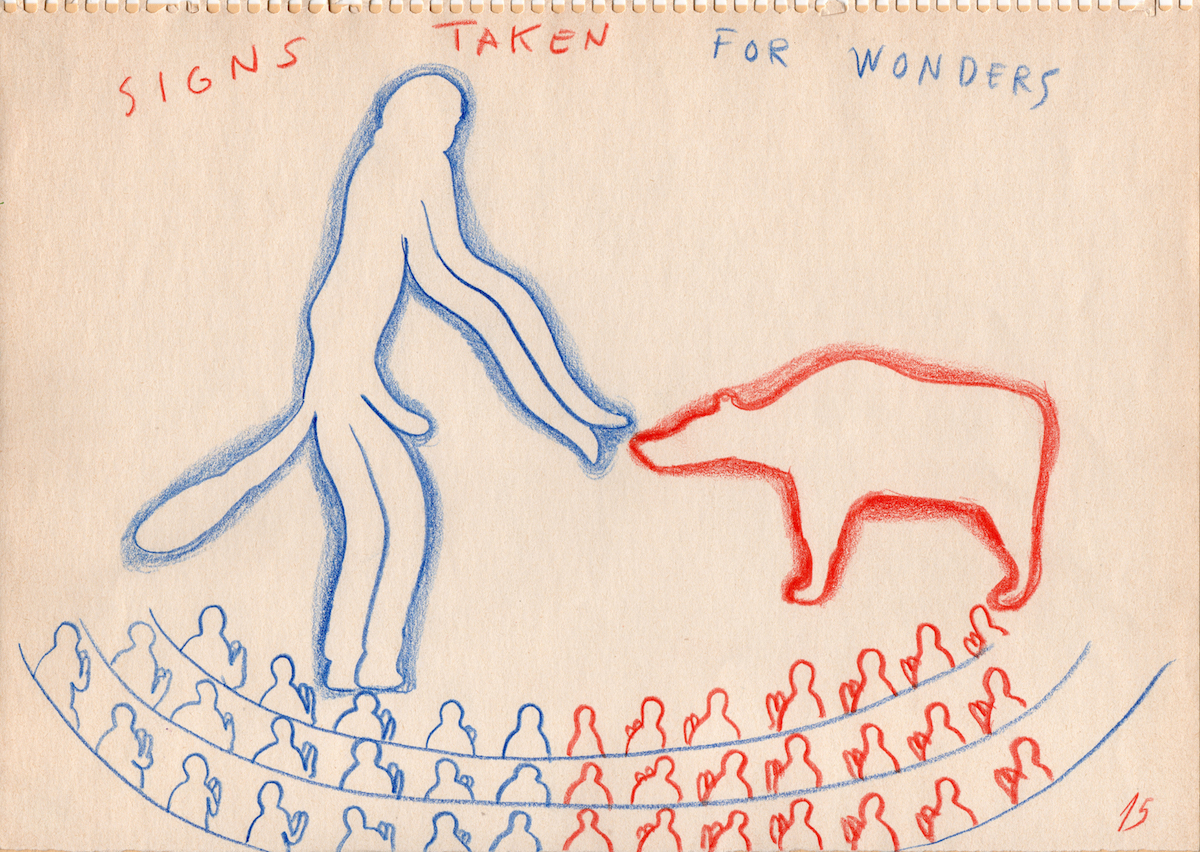 SIGNS TAKEN FOR WONDERS
15